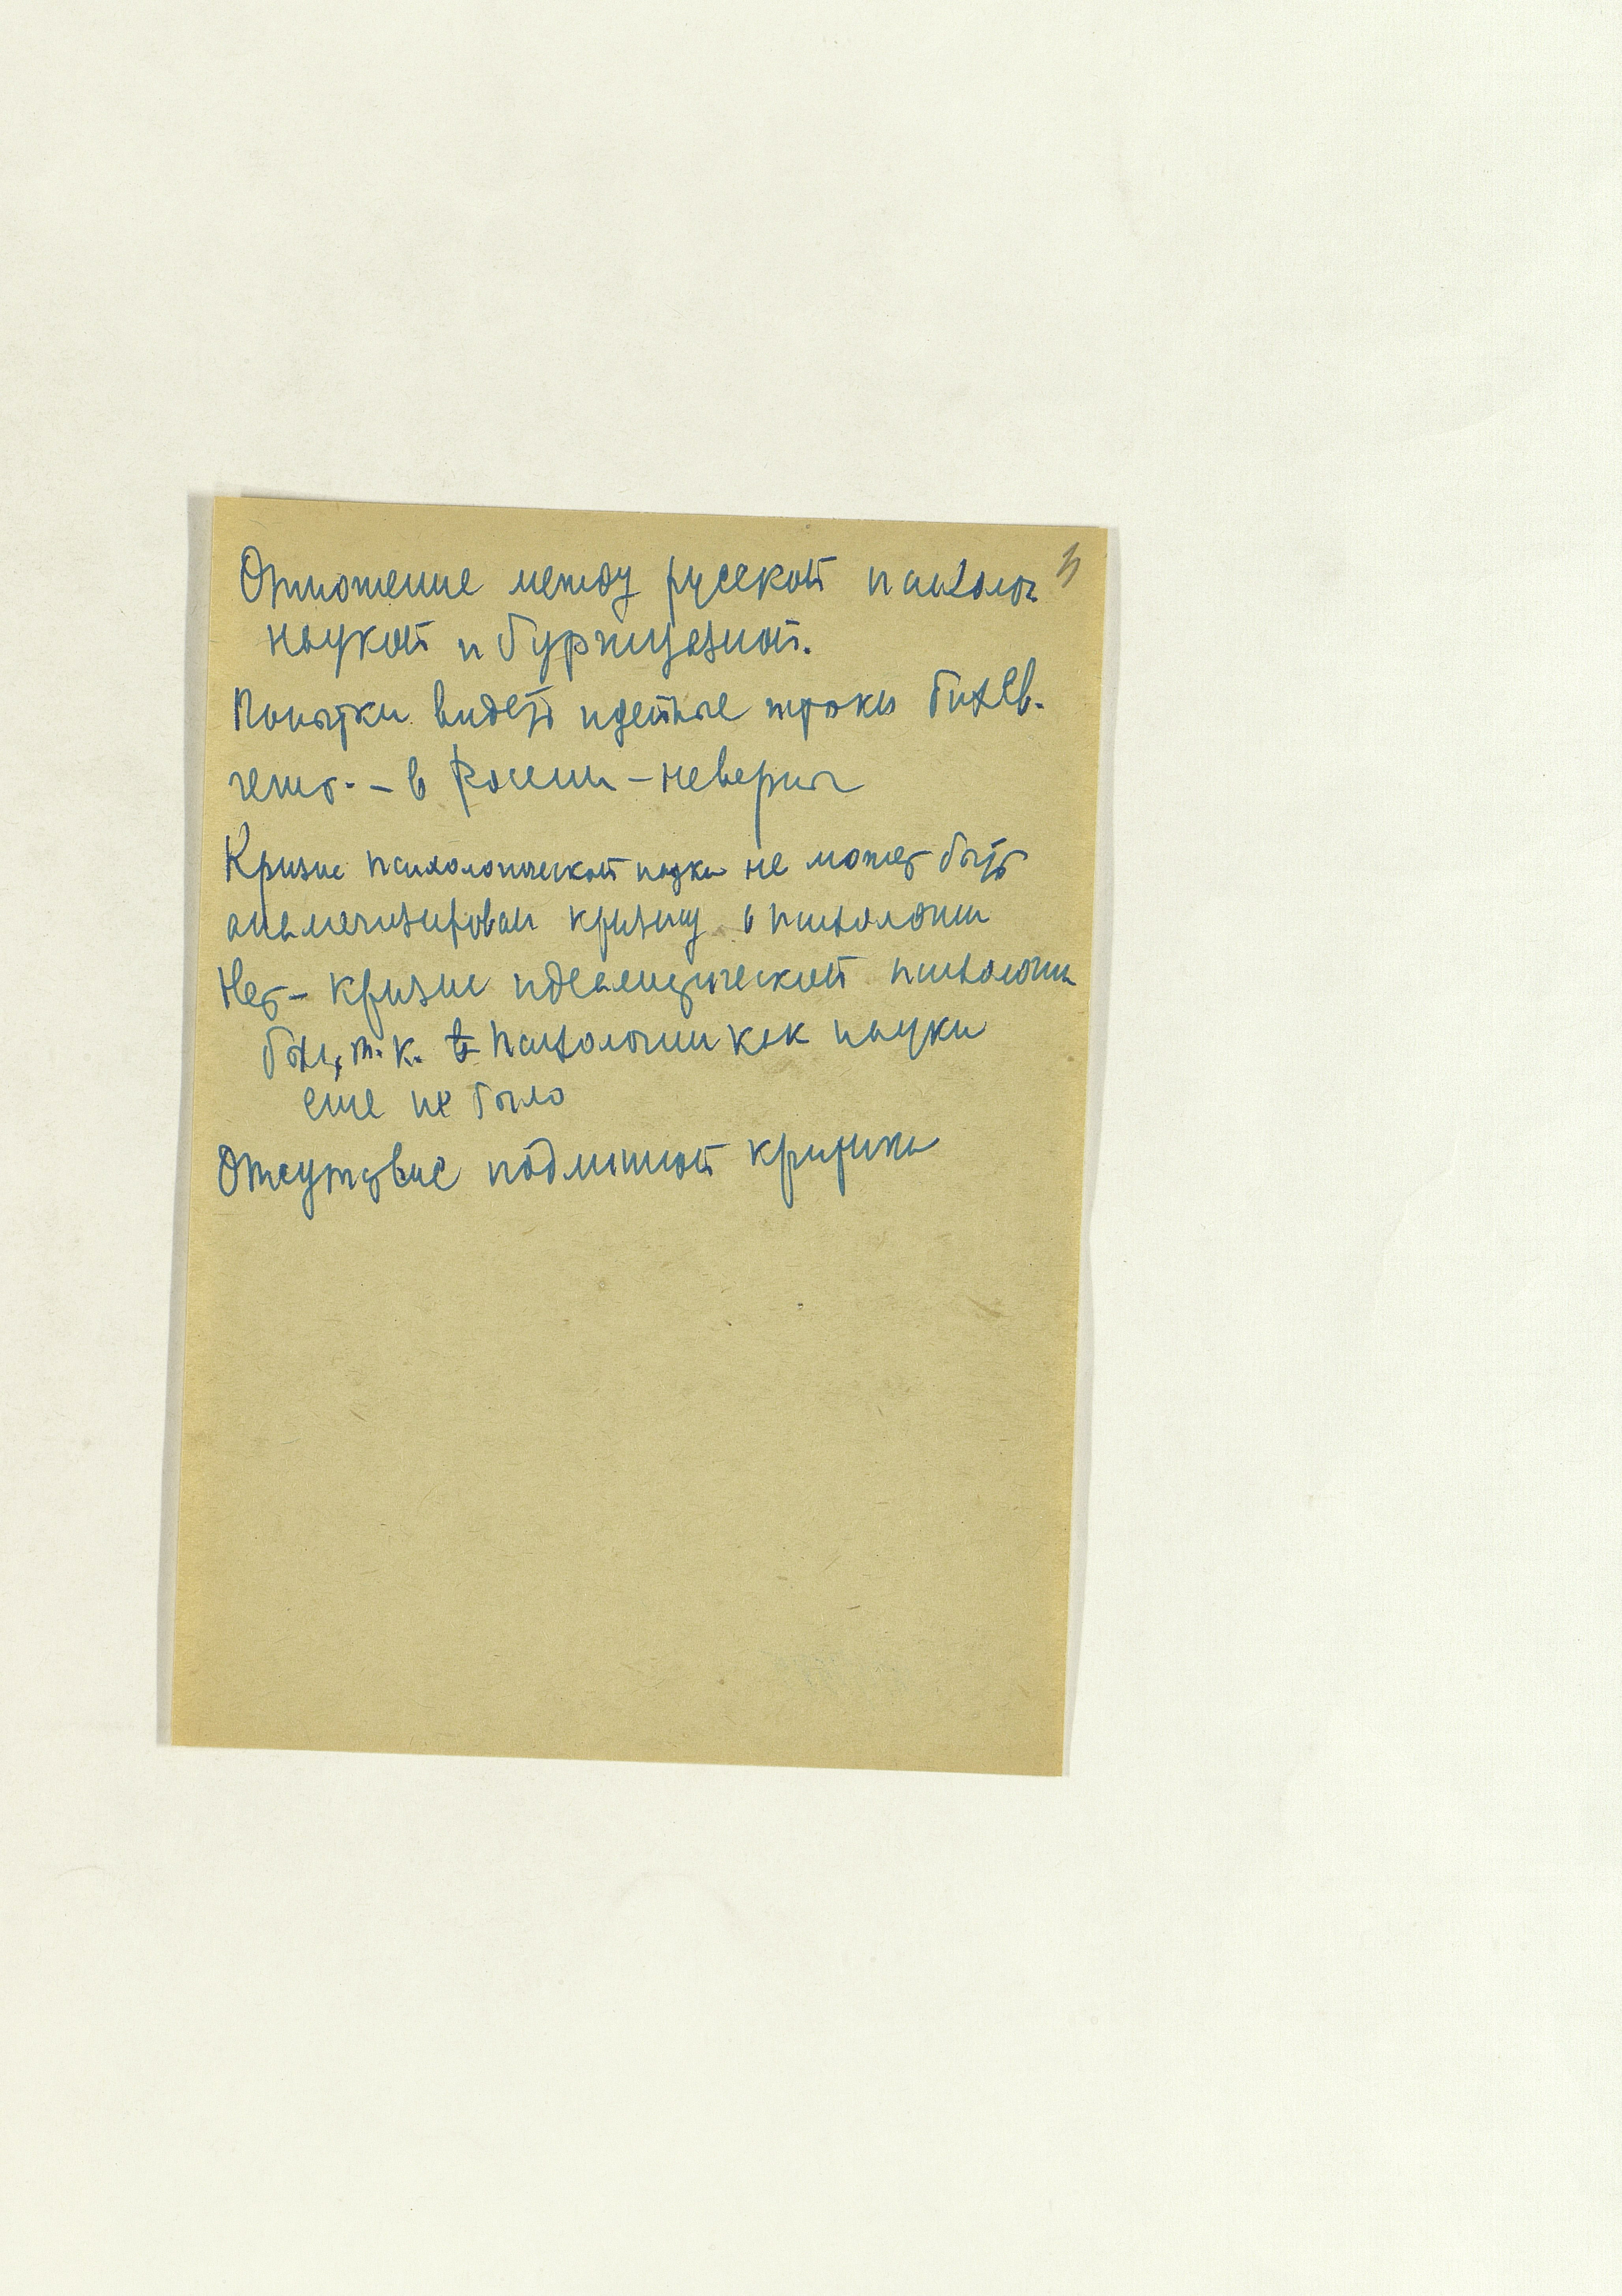 Отношение между русской психолог 3
наукой и буржуазной.
Попытки видеть идейные истоки бихев.
в России – неверны
Кризис психологической науки не может быть
кризису в психологии
Нет – кризис идеалистической психологии
был, т. к. психологии как науки
еще не было
Отсутствие подлинной критики